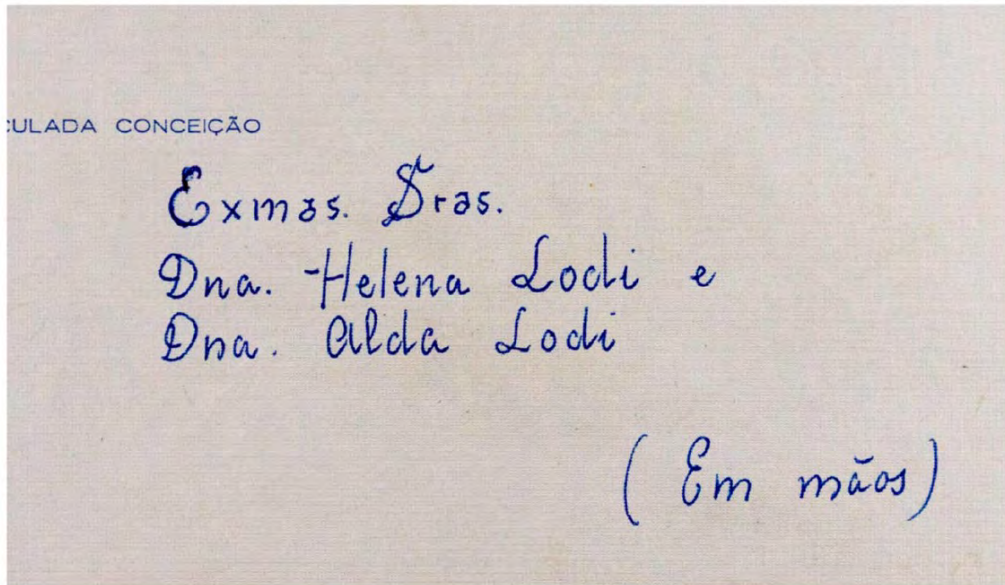 CULADA CONCEIÇÃO
Exmas. Sras.
Dna. Helena Lodi e
Dna. Alda Lodi
(Em mãos)